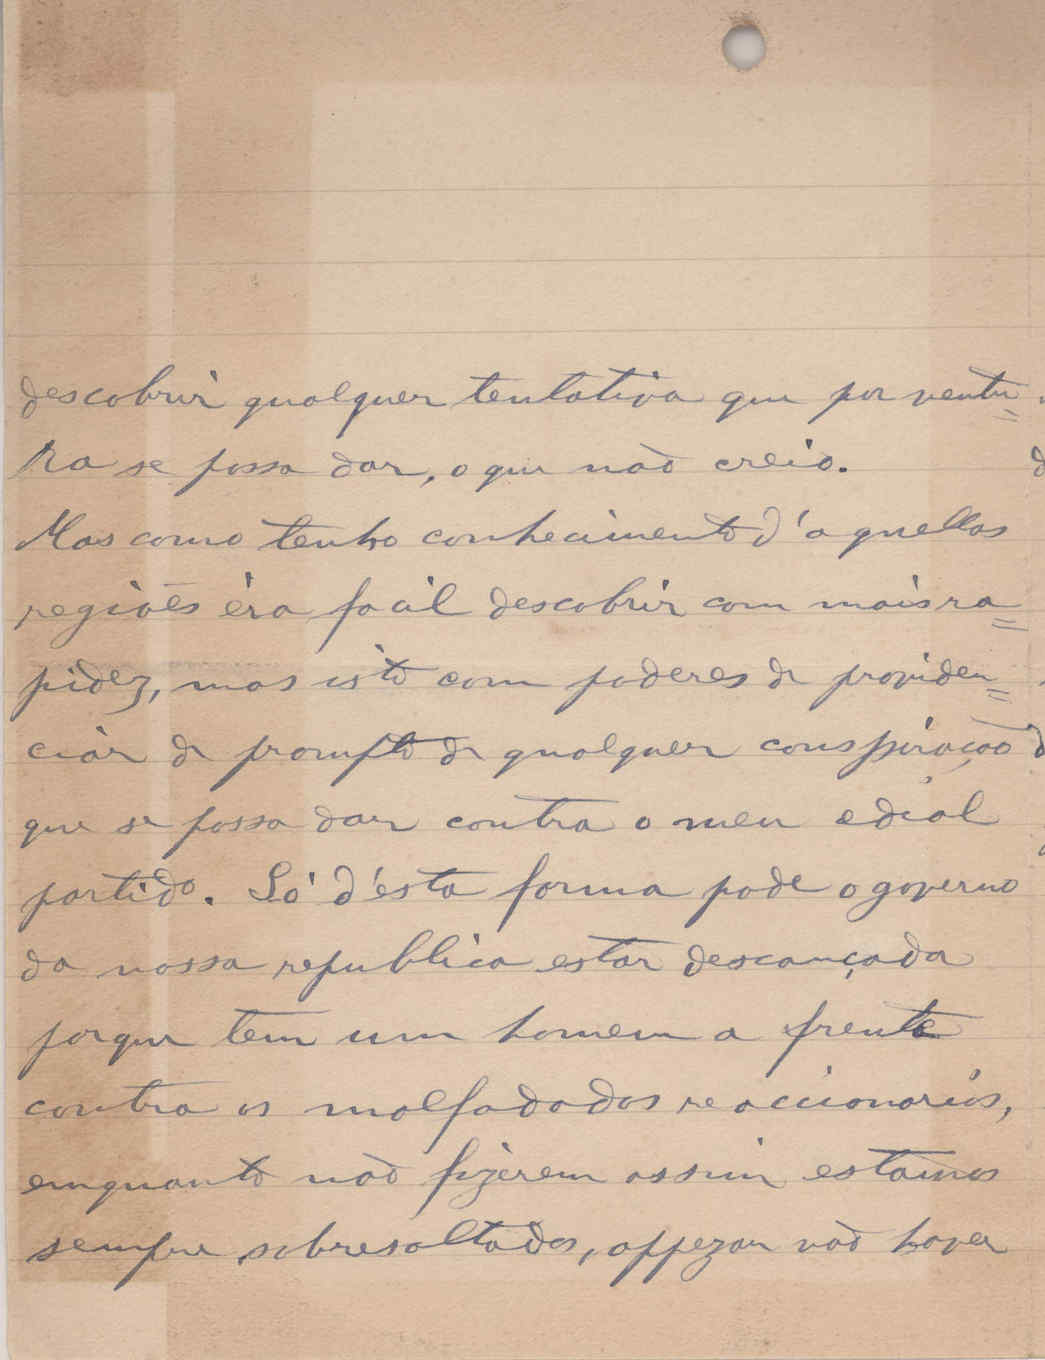 descobrir qualquer tentativa que por ventu=
ra se possa dar, o que não creio.
Mas como tenho conhecimento d'aquellas
regiões éra facil descobrir com mais ra=
pidez, mas isto com poderes de providen=
ciar de prompto de qualquer conspiração
que se possa dar contra o meu edial
partido. Só d'ésta forma pode o governo
da nossa republica estar descançada
porque tem um homem a frente
contra os malfadados reaccionarios,
emquanto não fizerem assim estamos
sempre sobresaltados, appezar não haver